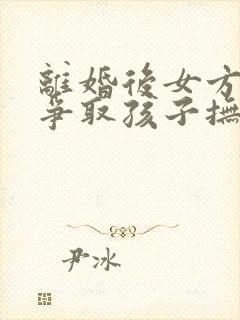 離婚後女方
爭取孩子撫
尹冰